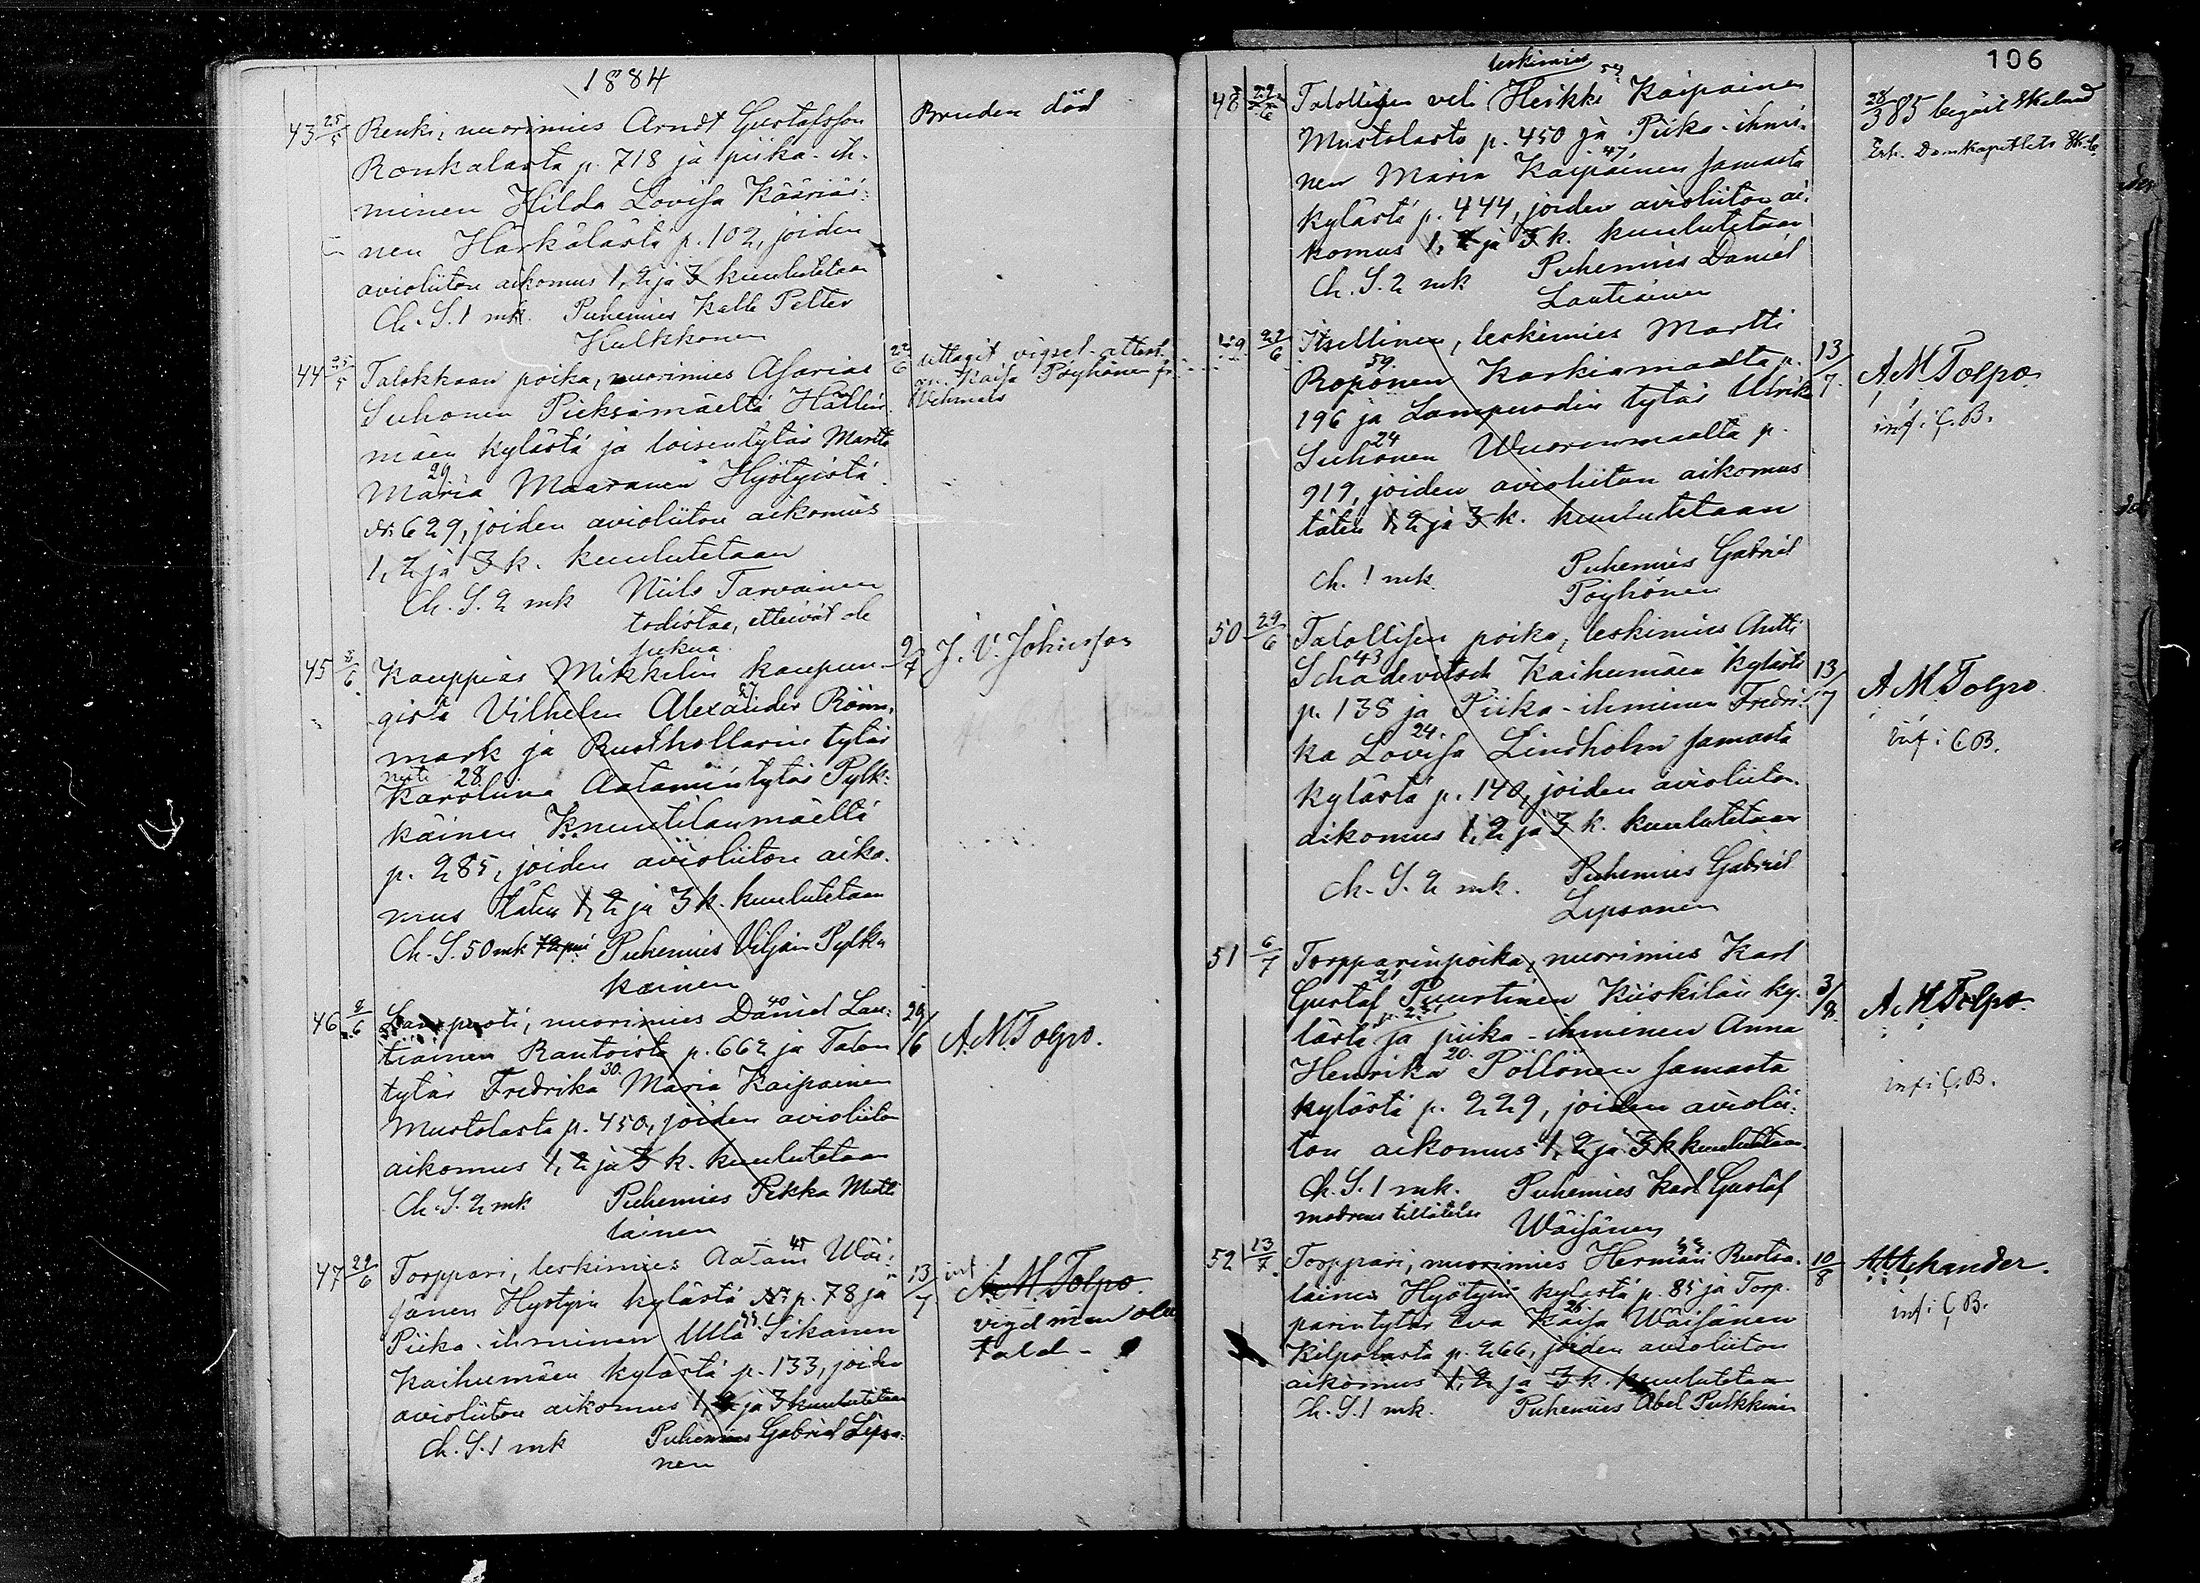 1884
43 25/5 Renki, nuorimies Arndt Gustafsson
Ronkalasta p. 718 ja piika-ih-
minen Hilda Lovisa Kääriäi-
nen Härkälästä p. 102, joiden
avioliiton aikomus 1, 2 ja 3 kuulutetaan
Ch. S. 1 mk. Puhemies Kalle Petter
Hulkkonen
Bruden död
44 25/5 Talokkaan poika, nuorimies Asarias
Suhonen Pieksämäeltä Hällin-
mäen kylästä ja loisentytär Martta
29
Maria Maaranen Hyötyistä
N: 629, joiden avioliiton aikomus
1, 2 ja 3 k. kuulutetaan
Ch. S. 2 mk Niilo Tarvainen
todistaa, etteivät ole
sukua.
22/6 uttagit vigsel-attest
Kaisa Pöyhönen
45 8/6 Kauppias Mikkelin kaupun-
27
gista Vilhelm Alexander Rönn-
mark ja Rusthollarin tytär
neiti 28
Karoliina Aatamintytär Pylk-
käinen Knuutilanmäeltä
p. 285, joiden avioliiton aiko-
mus täten 1, 2 ja 3 k. kuulutetaan
Ch. S. 50 mk Puhemies Viljam Pylk-
käinen
9/7 J. V. Johnsson
46 8/6 Lampuoti, nuorimies Daniel 40 Lau-
tiainen Rantoista p. 662 ja Talon
30
tytär Fredrika Maria Kaipainen
Mustolasta p. 450, joiden avioliiton
aikomus 1, 2 ja 3 k. kuulutetaan
Ch. S. 2 mk Puhemies Pekka Matti-
lainen
29/6 A. M. Tolpo.
47 29/6 Torppari, leskimies Aatami 45 Wäi-
sänen Hyötyin kylästä p. 78 ja
Piika-ihminen Ulla Sikanen
Kaihumäen kylästä p. 133, joiden
avioliiton aikomus 1, 2 ja 3 kuulutetaan
Ch. S. 1 mk Puhemies Gabriel Lipsa-
nen
13/7 inf. A. M. Tolpo.
vigd men
106
leskimies
54
48 29/6 Talollisen veli Heikki Kaipainen
Mustolasta p. 450 ja Piika-ihmi-
47
nen Maria Kaipainen samasta
kylästä p. 444, joiden avioliiton ai-
komus 1, 2 ja 3 k. kuulutetaan
Ch. S. 2 mk Puhemies Daniel
Lautiainen
28/3 85 begärt
Erh. Domkapitlets
49 22/6 Itsellinen, leskimies Martti
59
Roponen Karkiamaalta p.
196 ja Lampuodin tytär Ulrika
24
Suhonen Wuorenmaalta p.
919, joiden avioliiton aikomus
täten 1, 2 ja 3 k. kuulutetaan
Ch. 1 mk Puhemies Gabriel
Pöyhönen
13/7 A. M. Tolpo
inf. i C. B.
50 29/6 Talollisen poika, leskimies Antti
43
Schadevitsch Kaihumäen kylästä
p. 138 ja Piika-ihminen Fredri-
24
ka Lovisa Lindholm samasta
kylästä p. 140, joiden avioliiton
aikomus 1, 2 ja 3 k. kuulutetaan
Ch. S. 2 mk. Puhemies Gabriel
Lipsanen
13/7 A. M. Tolpo
inf. i C. B.
51 6/7 Torpparinpoika, nuorimies Karl
21
Gustaf Puurtinen Kiiskilän ky-
lästä ja piika-ihminen Anna
20
Henrika Pöllönen samasta
kylästä p. 229, joiden aviolii-
ton aikomus 1, 2 ja 3 k kuulutetaan
Ch. S. 1 mk. Puhemies Karl Gustaf
modrens tillåtelse
Wäisänen
3/8 A. M. Tolpo
inf. i C. B.
52 13/7 Torppari, nuorimies Herman Ruotsa-
lainen Hyötyin kylästä p. 85 ja Torp-
26
parintytär Eva Kaisa Wäisänen
Kilpolasta p. 266, joiden avioliiton
aikomus 1, 2 ja 3 k. kuulutetaan
Ch. S. 1 mk. Puhemies Abel Pulkkinen
10/8
inf. i C. B.